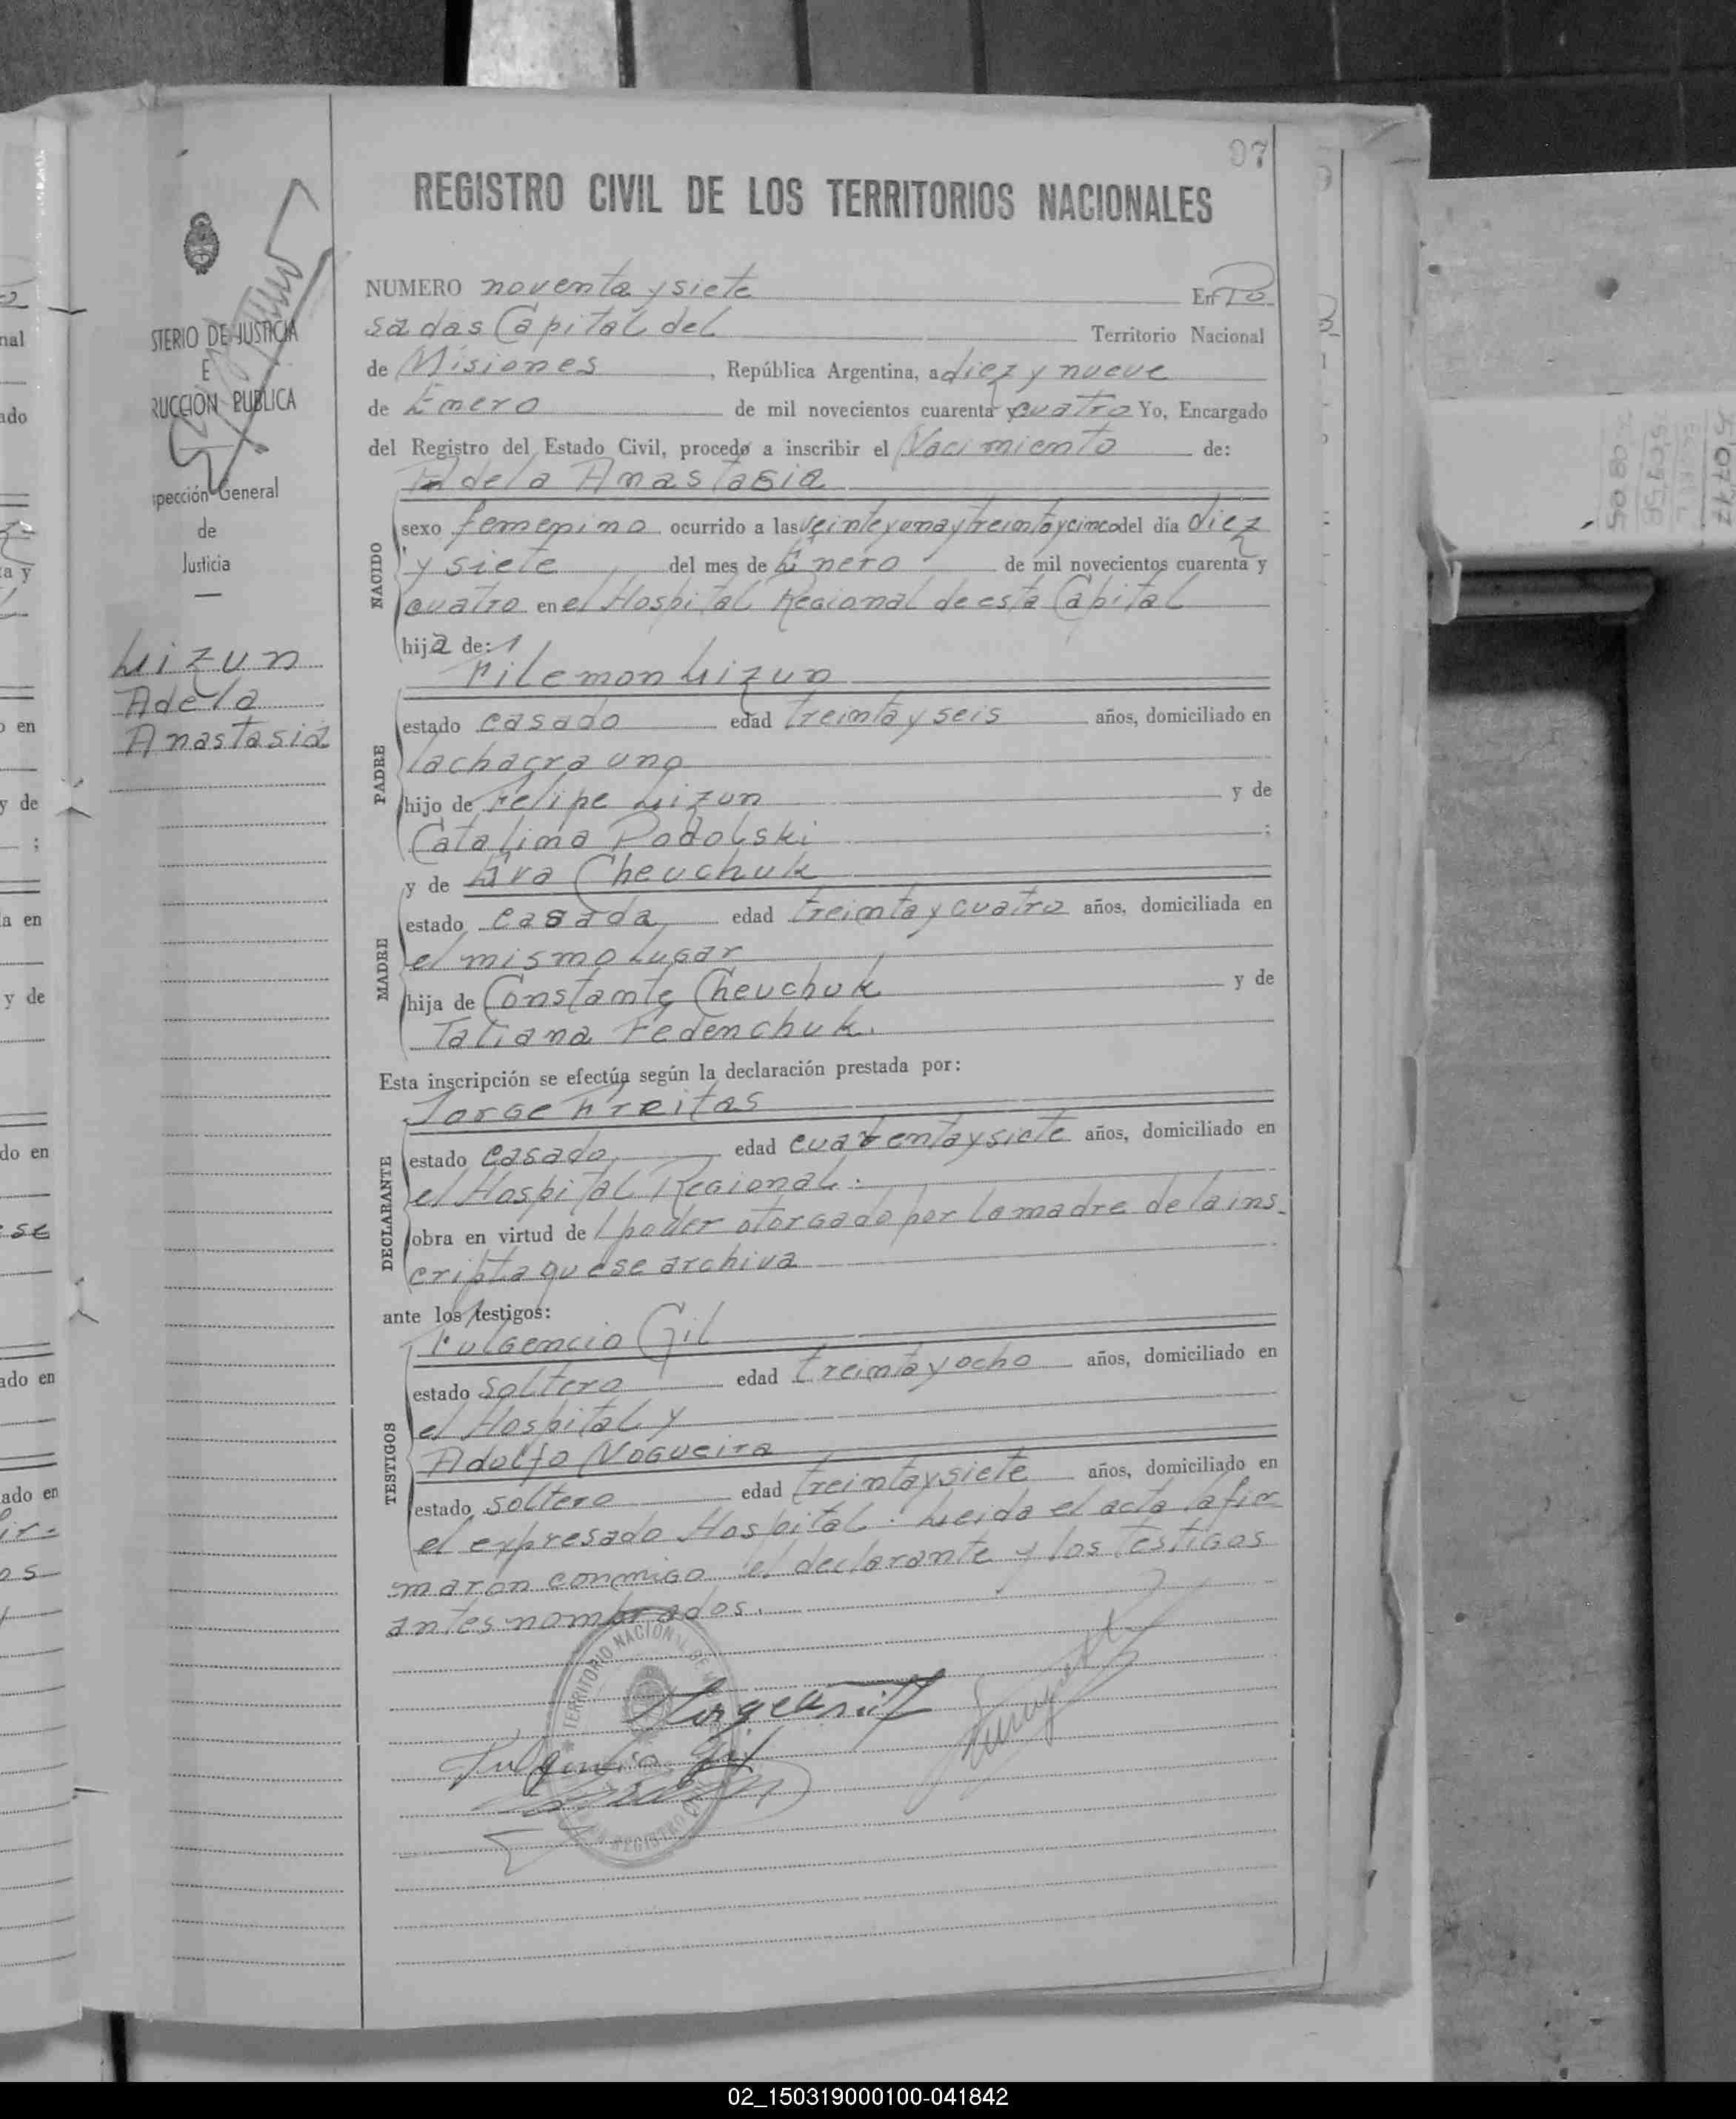 97
REGISTRO CIVIL DE LOS TERRITORIOS NACIONALES
NUMERO noventa y siete En Po
sadas Capital del Territorio Nacional
de Misiones, República Argentina, a diez y nueve
de Enero de mil novecientos cuarenta y cuatro Yo, Encargado
del Registro del Estado Civil, procedo a inscribir el Nacimiento de:
Adela Anastasia
NACIDO
sexo femenino ocurrido a las veinte y una y treinta y cinco del día diez
y siete del mes de Enero de mil novecientos cuarenta y
cuatro en el Hospital Regional de esta Capital
hija de:
Filemon Lizun
PADRE
estado casado edad treinta y seis años, domiciliado en
la chacra uno
hijo de Felipe Lizun y de
Catalina Podolski ;
y de Eva Cheuchuk
MADRE
estado casada edad treinta y cuatro años, domiciliada en
el mismo lugar
hija de Constante Cheuchuk y de
Tatiana Fedenchuk.
Esta inscripción se efectúa según la declaración prestada por:
Jorge Freitas
DECLARANTE
estado casado edad cuarenta y siete años, domiciliado en
el Hospital Regional.
obra en virtud de l poder otorgado por la madre de la ins-
cripta que se archiva
ante los testigos:
Fulgencio Gil
TESTIGOS
estado soltero edad treinta y ocho años, domiciliado en
el Hospital y
Adolfo Nogueira
estado soltero edad treinta y siete años, domiciliado en
el expresado Hospital. Leida el acta la fir
maron conmigo el declarante y los testigos
antes nombrados.
TERRITORIO NACIONAL DE
REGISTRO
Fulgencio Gil
STERIO DE JUSTICIA
E
RUCCION PUBLICA
spección General
de
Justicia
Lizun
Adela
Anastasia
nal
ado
ta y
o en
y de
;
a en
y de
do en
se
ado en
ado en
ir-
os
02_150319000100-041842